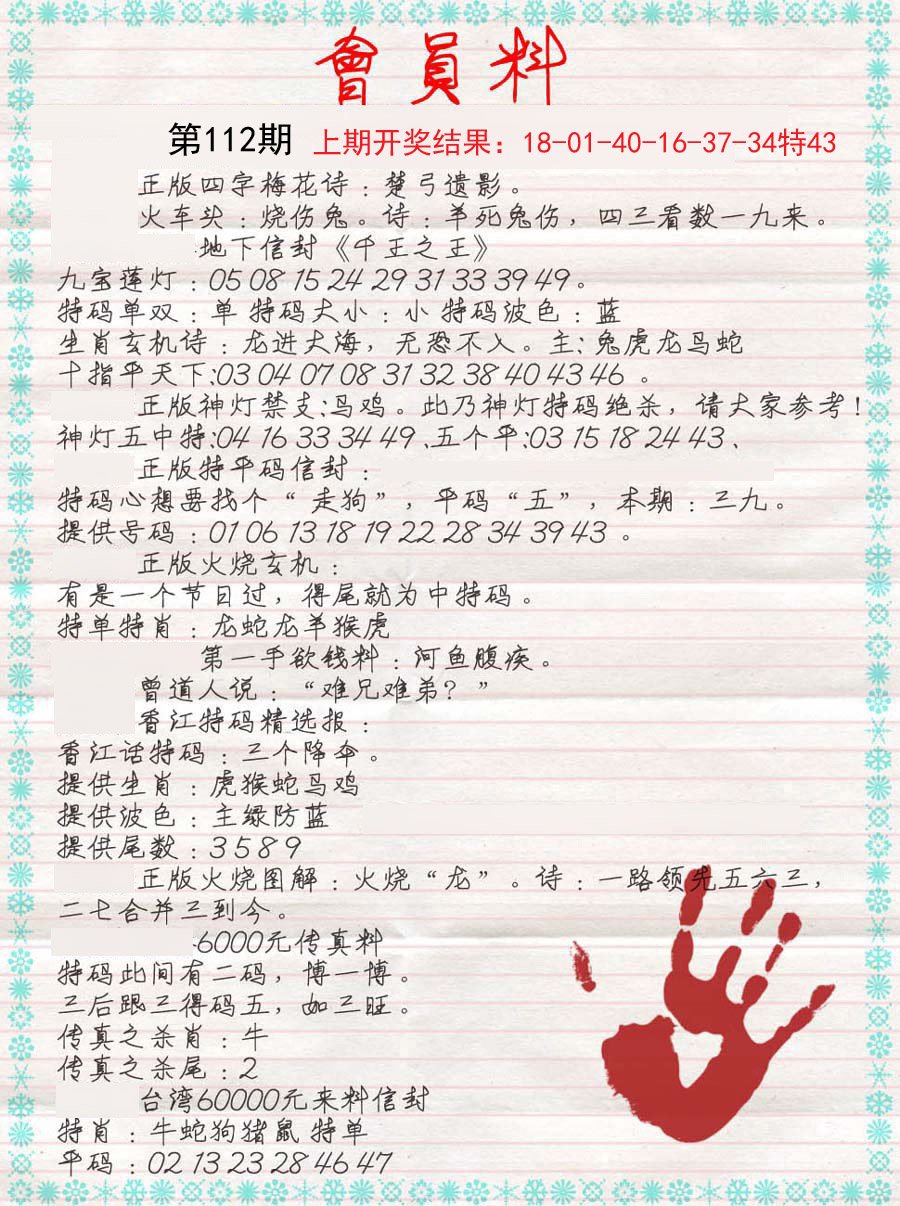 會員料
第112期 上期开奖结果：18-01-40-16-37-34特43
正版四字梅花诗：楚弓遗影。
火车头：烧伤兔。诗：羊死兔伤，四三看数一九来。
地下信封《千王之王》
九宝莲灯：05 08 15 24 29 31 33 39 49。
特码单双：单 特码大小：小 特码波色：蓝
生肖玄机诗：龙进大海，无恐不入。主:兔虎龙马蛇
十指平天下:03 04 07 08 31 32 38 40 43 46 。
正版神灯禁支:马鸡。此乃神灯特码绝杀，请大家参考！
神灯五中特:04 16 33 34 49 、五个平:03 15 18 24 43 、
正版特平码信封：
特码心想要找个“走狗”，平码“五”，本期：三九。
提供号码：01 06 13 18 19 22 28 34 39 43 。
正版火烧玄机：
有是一个节日过，得尾就为中特码。
特单特肖：龙蛇龙羊猴虎
第一手欲钱料：河鱼腹疾。
曾道人说：“难兄难弟？”
香江特码精选报：
香江话特码：三个降伞。
提供生肖：虎猴蛇马鸡
提供波色：主绿防蓝
提供尾数：3 5 8 9
正版火烧图解：火烧“龙”。诗：一路领先五六三，
二七合并三到今。
6000元传真料
特码此间有二码，博一博。
三后跟三得码五，如三旺。
传真之杀肖：牛
传真之杀尾：2
台湾60000元来料信封
特肖：牛蛇狗猪鼠 特单
平码：02 13 23 28 46 47